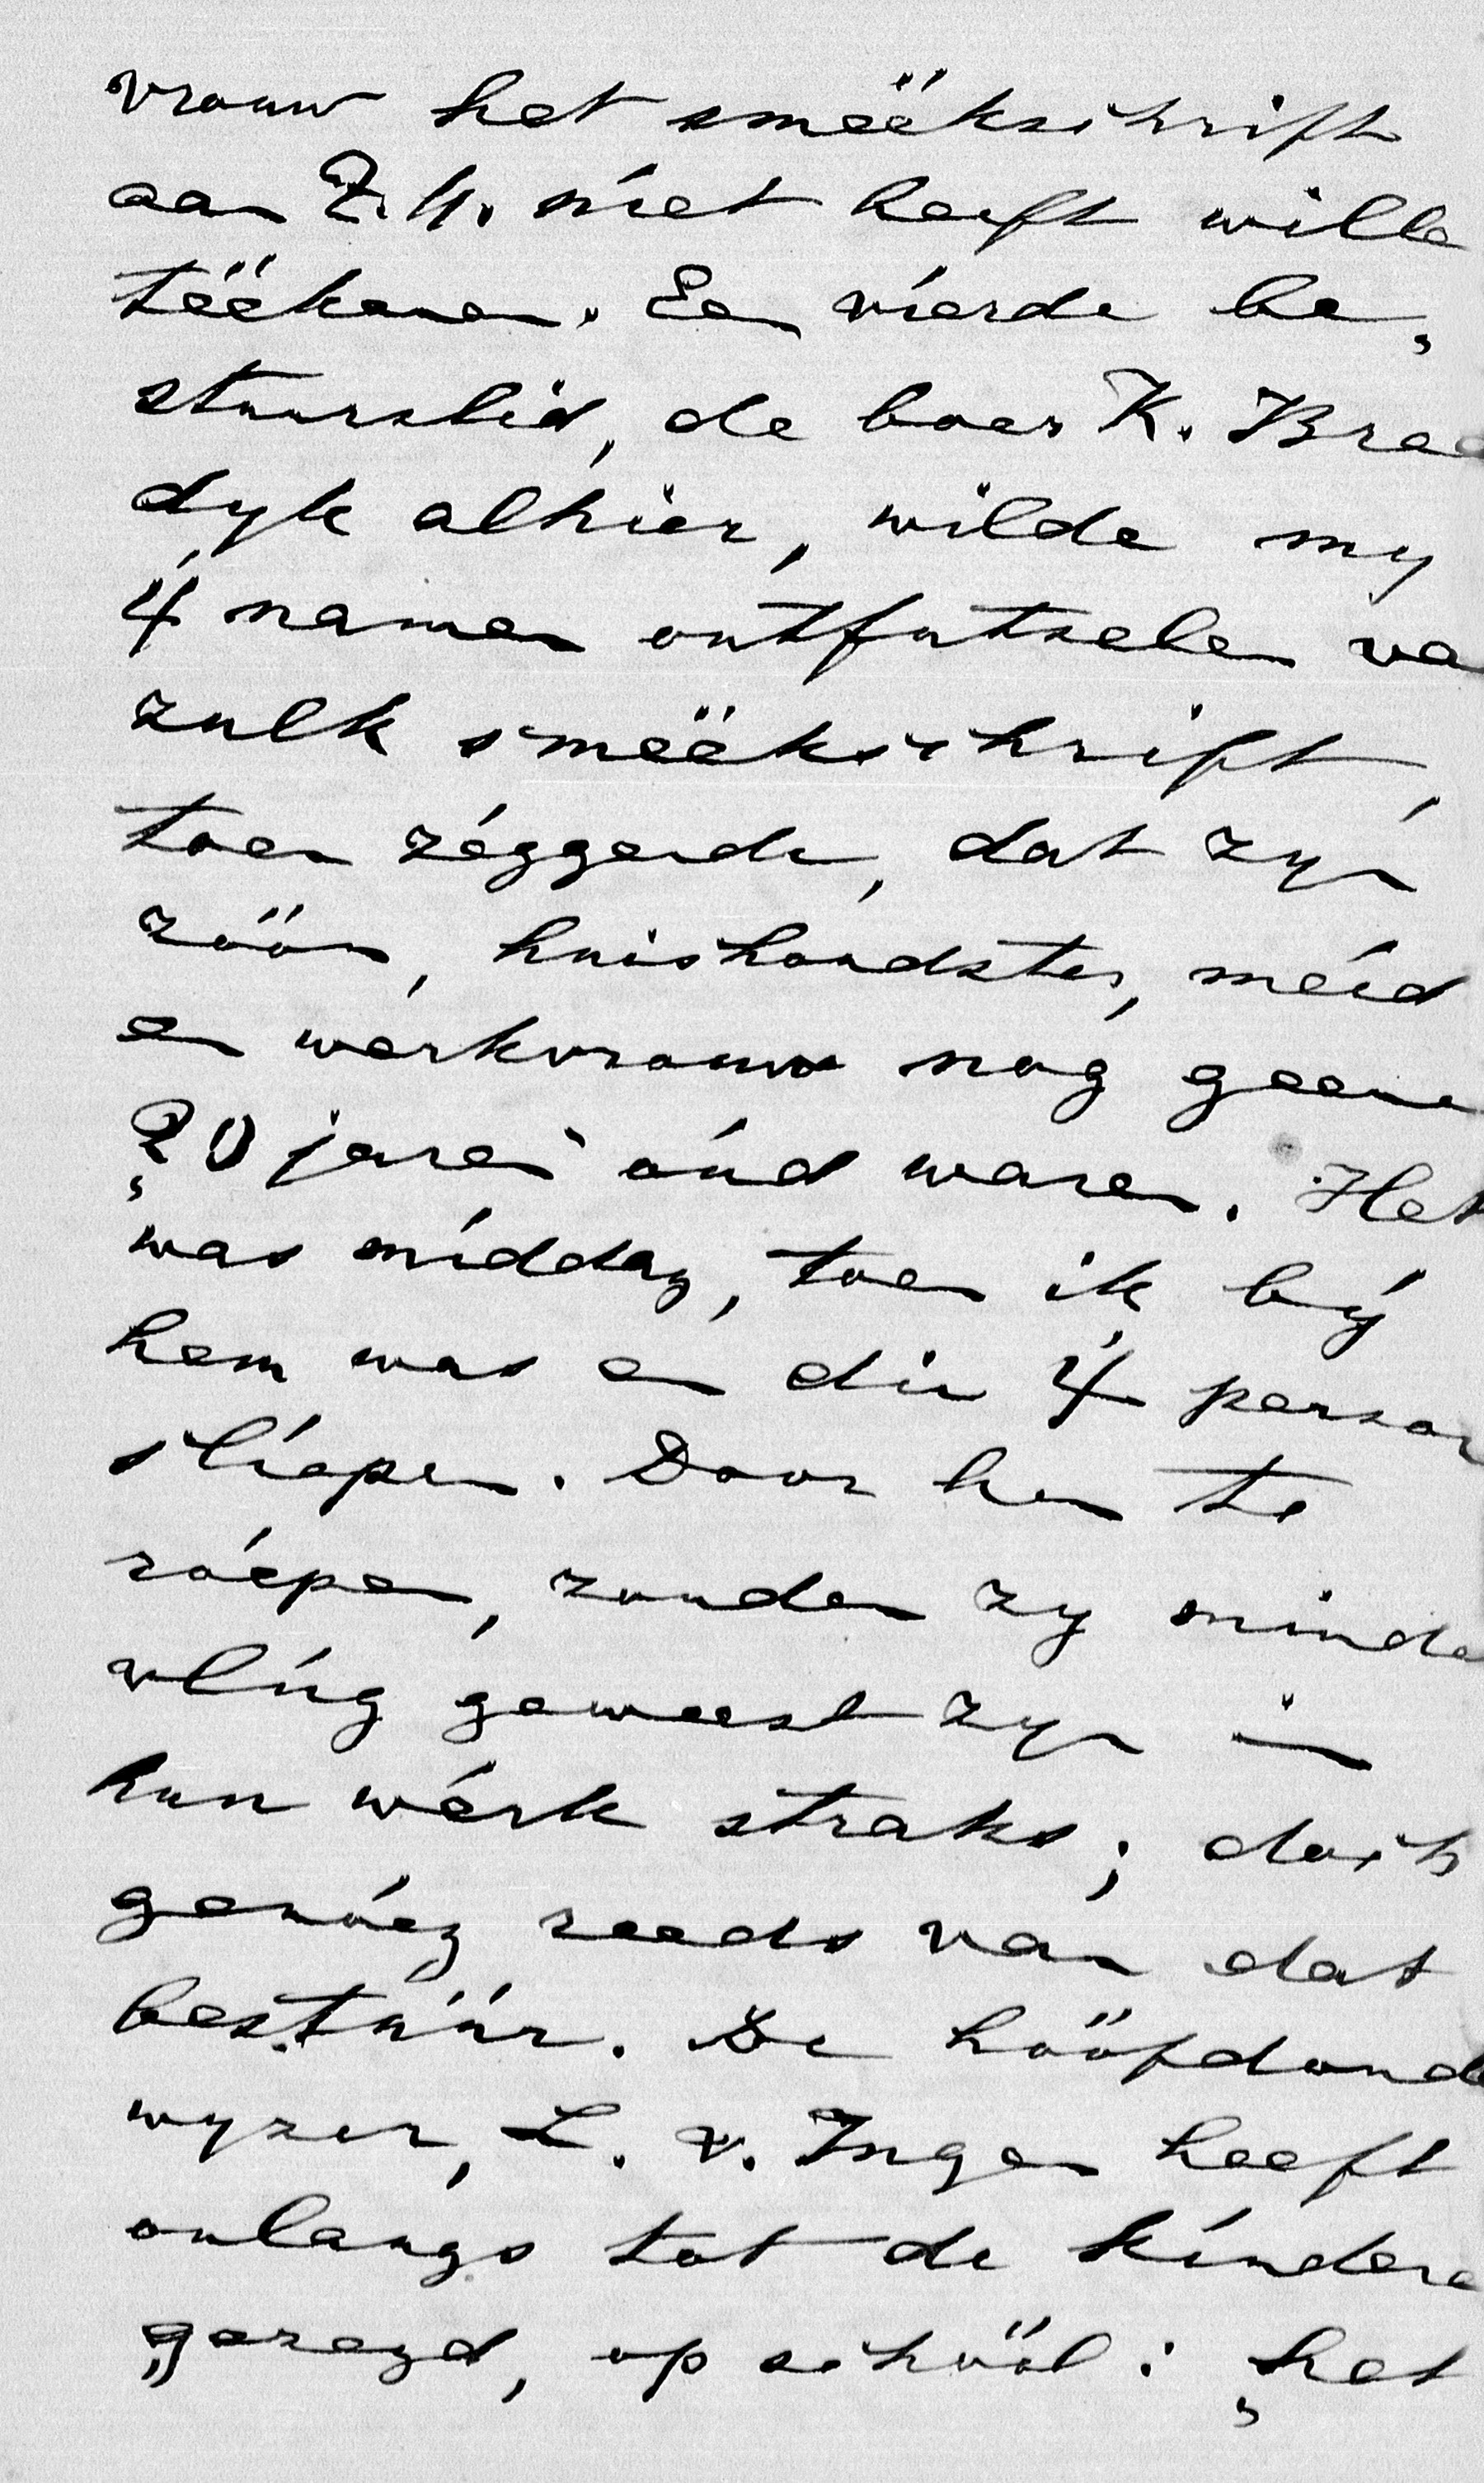 vrouw het smëëkschrift
aan Z.H. níet heeft wille
tëëkenen. Een víerde be„
stuurslid, de boer K. Bree
dyk alhier, wilde my
4 namen ontfutselen va
zulk smëëkschrift,
toen zéggende, dat zyn
zöön, huishoudster, méid
en wérkvrouw nog geene
„20 jaren" óúd waren. Het
was míddag, toen ik bý
hem was en die 4 person
slíepen. Door hen te
róépen, zouden zy minde
vlúg geweest zyn in
hun wérk straks; doch
genóég reeds ván dat
bestúúr. De höofdond
wyzer, L. v. Ingen heeft
onlangs tot de kíndere
gezegd, op schöol: „het